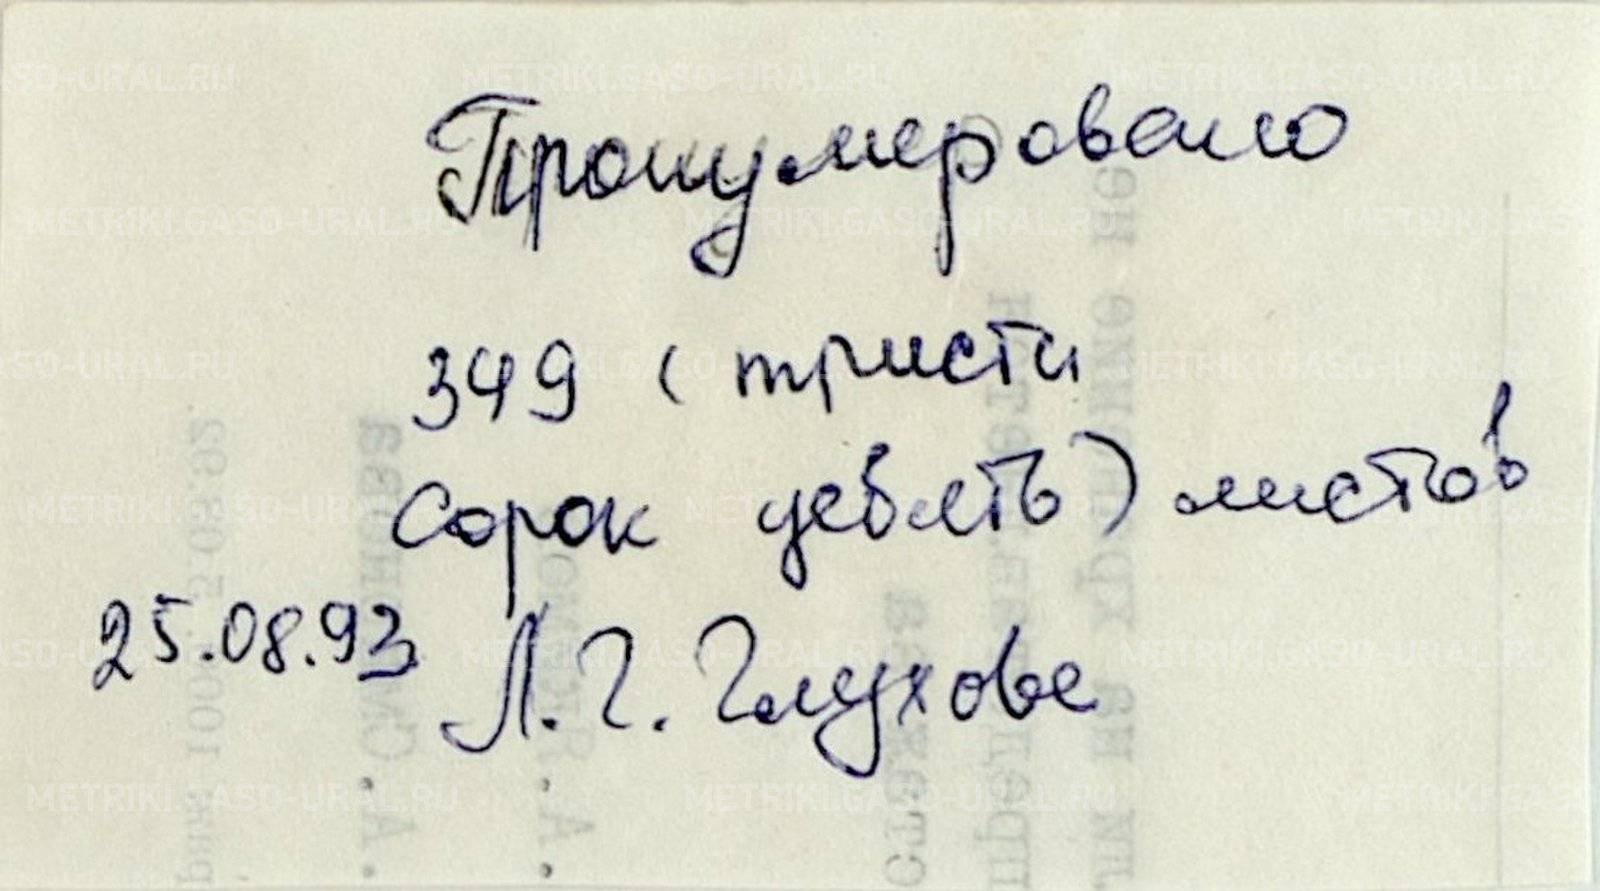 Пронумеровано
349 (триста
сорок девять) листов
25.08.93 Л. Г. Глухова
METRIKI.GASO-URAL.RU